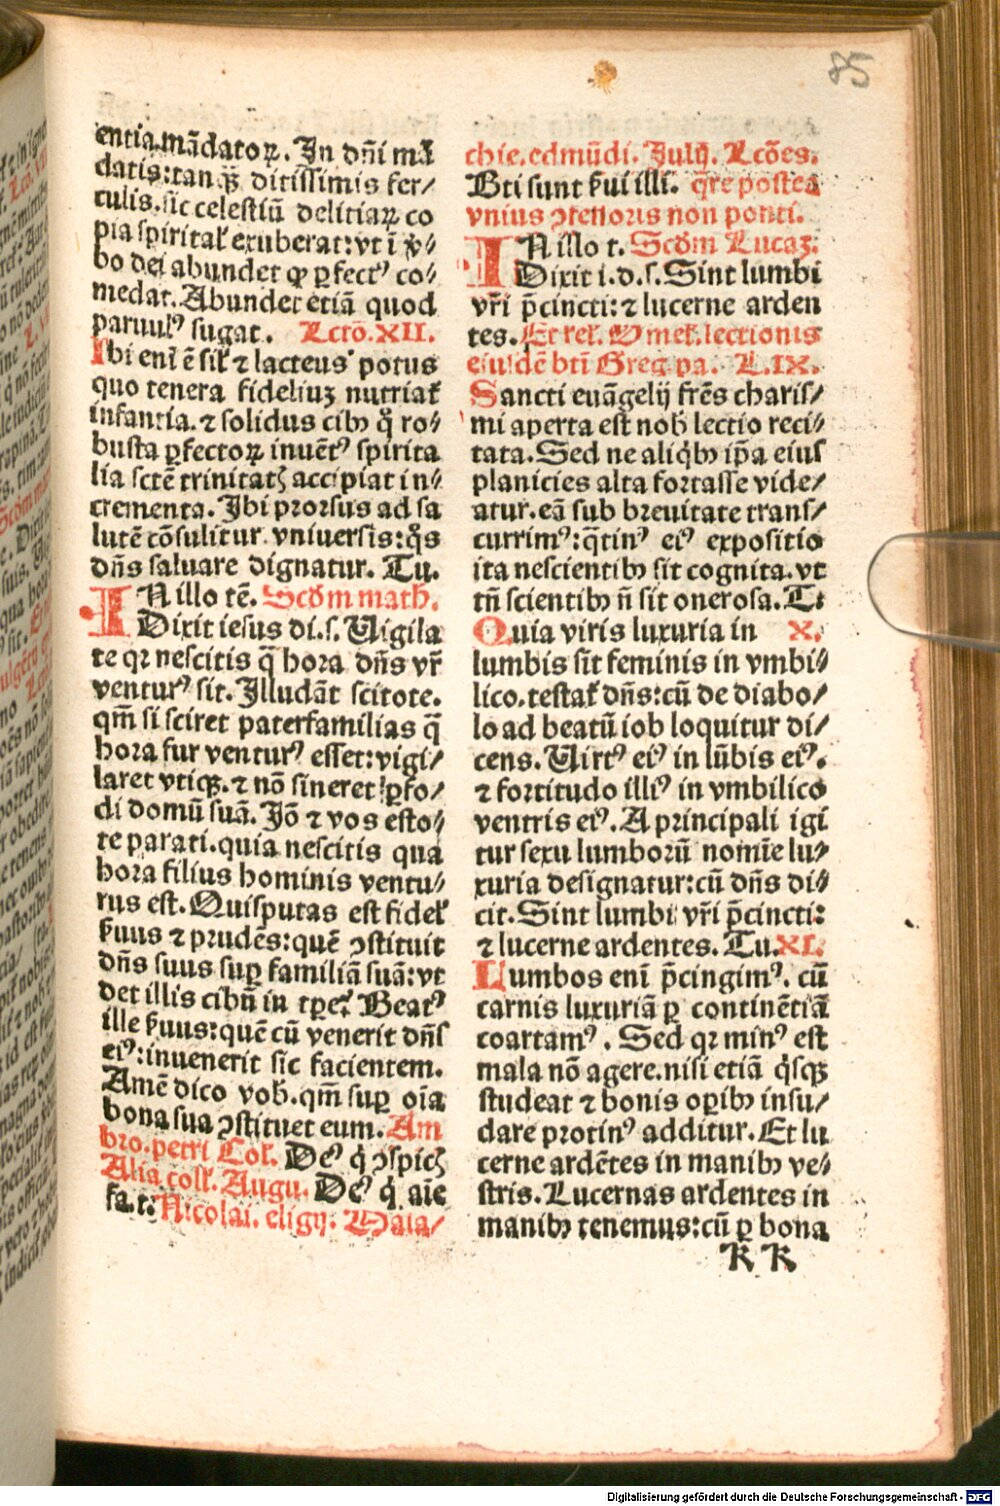 85
entia mādatoꝝ. In dn̄i mā
datis: tanqȝ ditissimis fer/
culis. sic celestiū delitiaꝝ co
pia spiritaꝉ exuberat: vt ī ꝟ/
bo dei abundet qͥ ꝑfectꝰ co/
medat. Abundet etiā quod
paruulꝰ sugat. Lctō. XII.
Ibi eni ē siꝉ ⁊ lacteus potus
quo tenera fideliuȝ nutriaꞇ̄
infantia. ⁊ solidus cibꝰ qͥ ro/
busta ꝑfectoꝝ inuētꝰ spirita
lia sctē trinitatꝭ accipiat in/
crementa. Ibi prorsus ad sa
lutē cōsulitur vniuersis: qͦs
dn̄s saluare dignatur. Tu.
IN illo tē. Scd̄m math.
Dixit iesus di. s. Vigila
te qꝛ nescitis q̄ hora dn̄s vr̄
venturꝰ sit. Illud āt scitote.
qm̄ si sciret paterfamilias q̄
hora fur venturꝰ esset: vigi/
laret vtiqȝ. ⁊ nō sineret ꝑfo/
di domū suā. Iō ⁊ vos esto/
te parati. quia nescitis qua
hora filius hominis ventu/
rus est. Quis putas est fideꝉ
ẜuus ⁊ prudēs: quē ꝯstituit
dn̄s suus suꝑ familiā suā: vt
det illis cibū in tꝑe? Beatꝰ
ille ẜuus: quē cū venerit dn̄s
eiꝰ: inuenerit sic facientem.
Amē dico vob̄. qm̄ suꝑ oīa
bona sua ꝯstituet eum. Am
bro. petri Col. Deꝰ qͥ ꝯspicꝭ
Alia coll. Augu. Deꝰ qͥ aīe
fa. t. Nicolai. eligij. Mala/
chie. edmūdi. Iulij. Lcōes.
Bti sunt ẜui illi. q̄re postea
vnius ꝯfessoris non ponti.
IN illo t. Scd̄m Lucaȝ.
Dixit i. d. s. Sint lumbi
vr̄i p̄cincti: ⁊ lucerne arden
tes. Et rel. Omel. lectionis
eiusdē bt̄i Greg. pa. L. IX.
Sancti euāgelij fr̄es charis/
mi aperta est nob̄ lectio reci/
tata. Sed ne aliqͥbꝰ ip̄a eius
planicies alta fortasse vide/
atur. eā sub breuitate trans/
currimꝰ: q̄tinꝰ eiꝰ expositio
ita nescientibꝰ sit cognita. vt
tn̄ scientibꝰ n̄ sit onerosa. T:
Quia viris luxuria in X.
lumbis sit feminis in vmbi/
lico. testaꞇ̄ dn̄s: cū de diabo/
lo ad beatū iob loquitur di/
cens. Virtꝰ eiꝰ in lūbis eiꝰ.
⁊ fortitudo illiꝰ in vmbilico
ventris eiꝰ. A principali igi
tur sexu lumborū nomīe lu/
xuria designatur: cū dn̄s di/
cit. Sint lumbi vr̄i p̄cincti:
⁊ lucerne ardentes. Tu. XI.
Lumbos eni p̄cingimꝰ. cū
carnis luxuriā ꝑ continētiā
coartamꝰ. Sed qꝛ minꝰ est
mala nō agere. nisi etiā qͥsqȝ
studeat ⁊ bonis oꝑibꝰ insu/
dare protinꝰ additur. Et lu
cerne ardētes in manibꝰ ve/
stris. Lucernas ardentes in
manibꝰ tenemus: cū ꝑ bona
KK
Digitalisierung gefördert durch die Deutsche Forschungsgemeinschaft - DFG